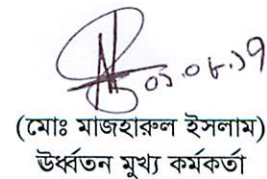 ০১.০৮.১৭
(মোঃ মাজহারুল ইসলাম)
উর্ধ্বতন মুখ্য কর্মকর্তা